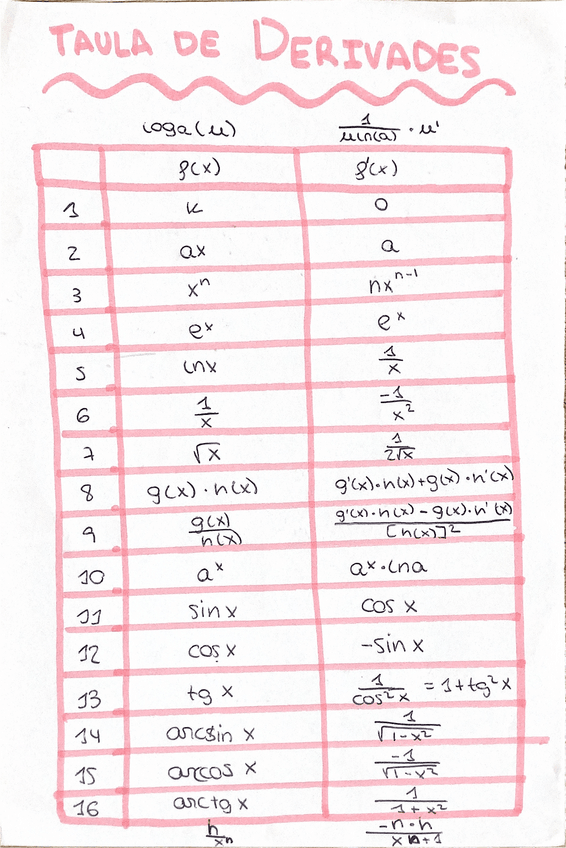 TAULA DE DERIVADES
loga(u) 1/(u ln(a)) · u'
f(x) f'(x)
1 k 0
2 ax a
3 xⁿ nxⁿ⁻¹
4 eˣ eˣ
5 lnx 1/x
6 1/x -1/x²
7 √x 1/(2√x)
8 g(x) · h(x) g'(x)·h(x)+g(x)·h'(x)
9 g(x)/h(x) (g'(x)·h(x) - g(x)·h'(x))/[h(x)]²
10 aˣ aˣ·lna
11 sin x cos x
12 cos x -sin x
13 tg x 1/cos²x = 1+tg²x
14 arcsin x 1/√(1-x²)
15 arcos x -1/√(1-x²)
16 arctg x 1/(1+x²)
h/xⁿ (-n·h)/xⁿ⁺¹